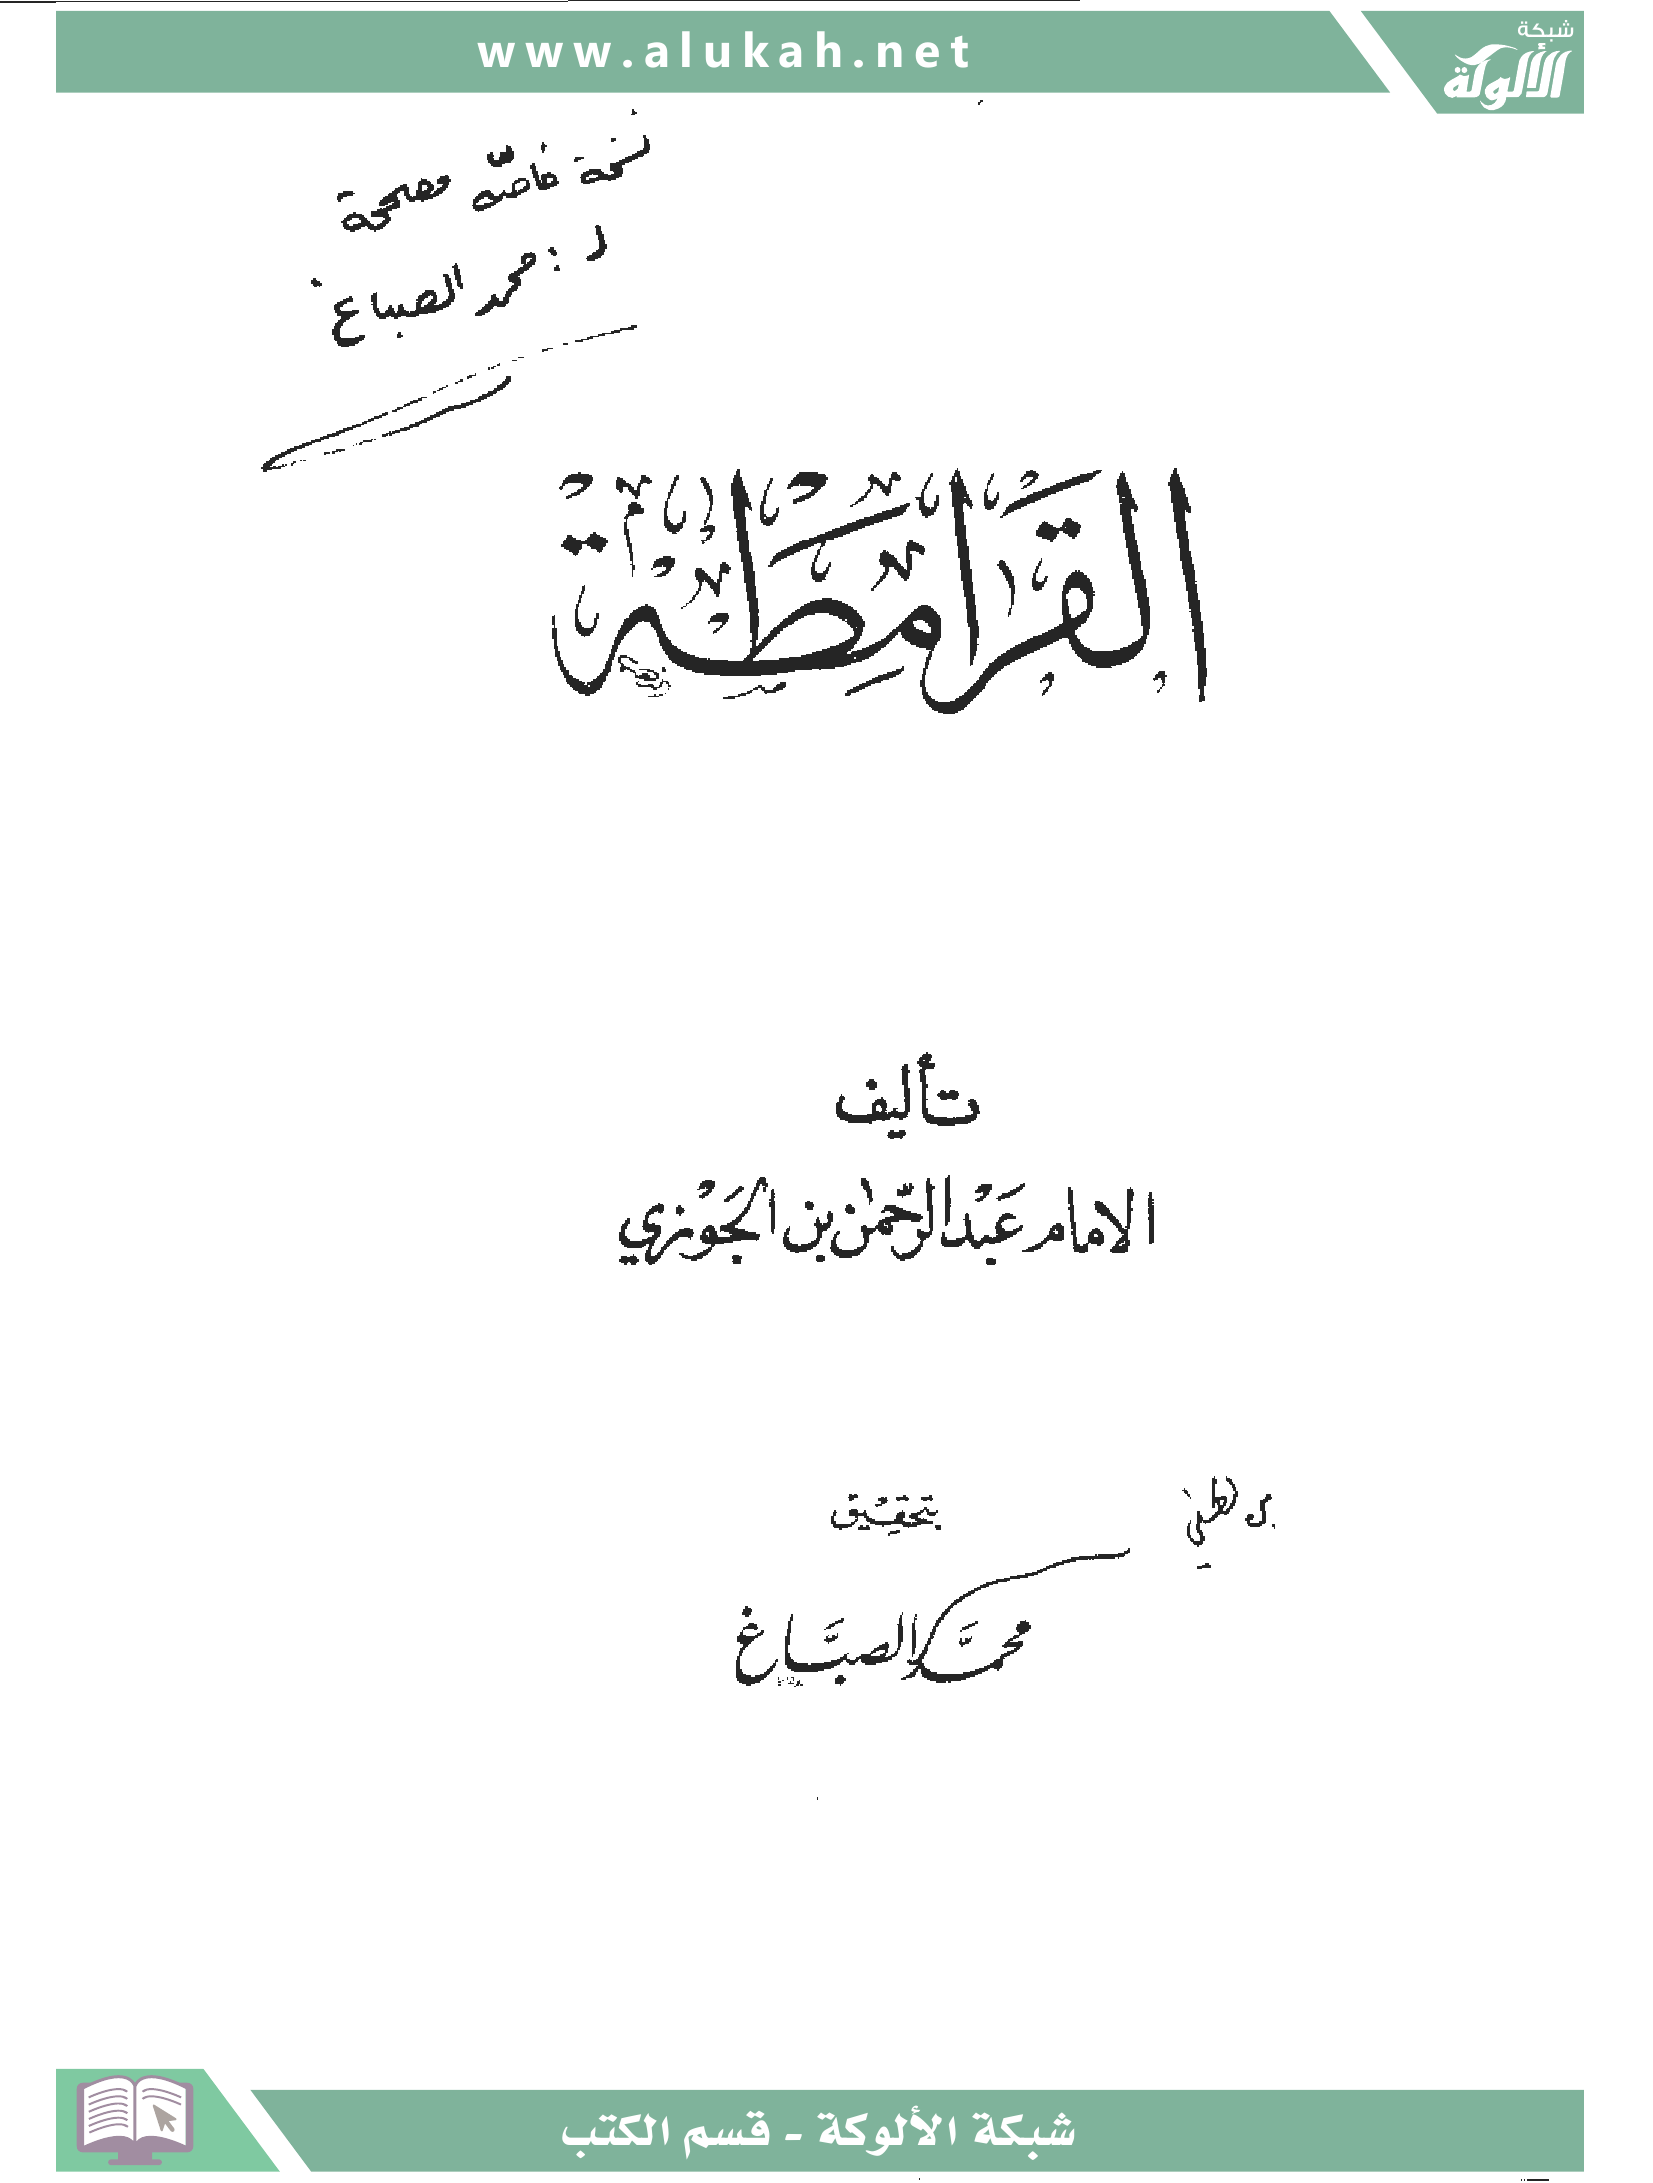 www.alukah.net
شبكة
الألوكة
نسخة خاصّة مصححة
لـ : محمد الصباغ
القَرامِطَة
تأليف
الامام عَبْد الرّحمٰن بن الجَوْزي
بتحقيق
بن لطفي
محمَّد الصبَّاغ
شبكة الألوكة - قسم الكتب